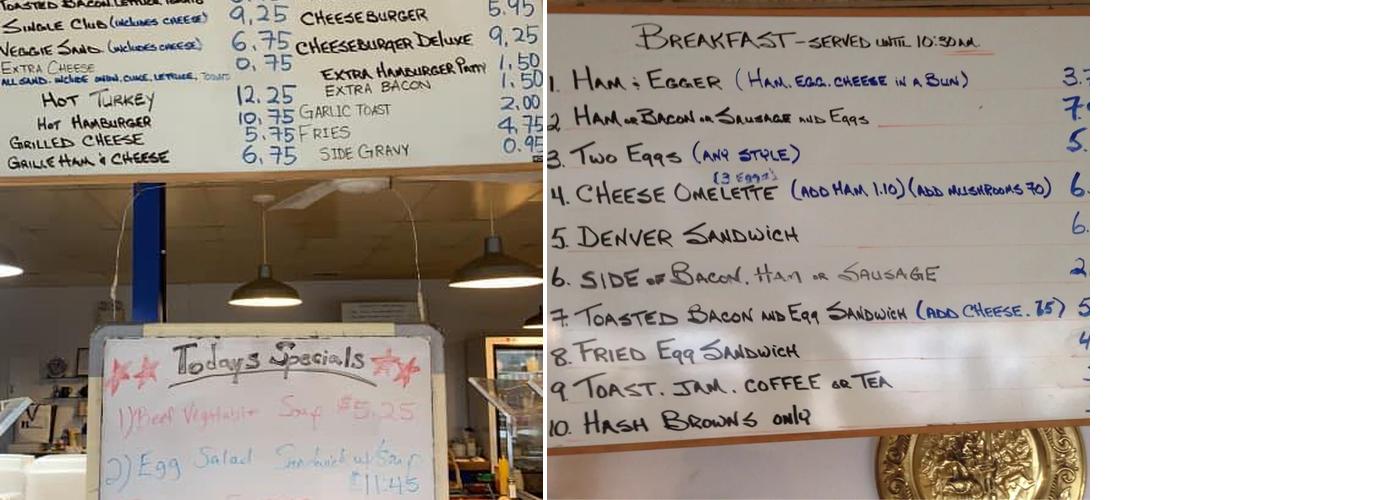 TOASTED BACON, LETTUCE, TOMATO
SINGLE CLUB (INCLUDES CHEESE) 9,25
VEGGIE SAND. (INCLUDES CHEESE) 6.75
EXTRA CHEESE 0,75
ALL SAND. INCLUDE ONION, CUKE, LETTUCE, TOMATO
HOT TURKEY 12.25
HOT HAMBURGER 10,75
GRILLED CHEESE 5.75
GRILLE HAM & CHEESE 6,75
5.95
CHEESEBURGER
CHEESEBURGER DELUXE 9,25
EXTRA HAMBURGER PATTY 1,50
EXTRA BACON 1.50
GARLIC TOAST 2,00
FRIES 4,75
SIDE GRAVY 0.95
Todays Specials
1) Beef Vegetable Soup $5.25
2) Egg Salad Sandwich w/ Soup
$11.45
BREAKFAST - SERVED UNTIL 10:30 AM.
1. HAM & EGGER (HAM. EGG. CHEESE IN A BUN) 3.
2 HAM OR BACON OR SAUSAGE AND EGGS 7.
3. TWO EGGS (ANY STYLE) 5.
(3 Eggs)
4. CHEESE OMELETTE (ADD HAM 1.10) (ADD MUSHROOMS 70) 6.
5. DENVER SANDWICH 6.
6. SIDE OF BACON. HAM OR SAUSAGE 2
7. TOASTED BACON AND EGG SANDWICH (ADD CHEESE .75) 5
8. FRIED EGG SANDWICH 4
9 TOAST. JAM. COFFEE OR TEA
10. HASH BROWNS ONLY